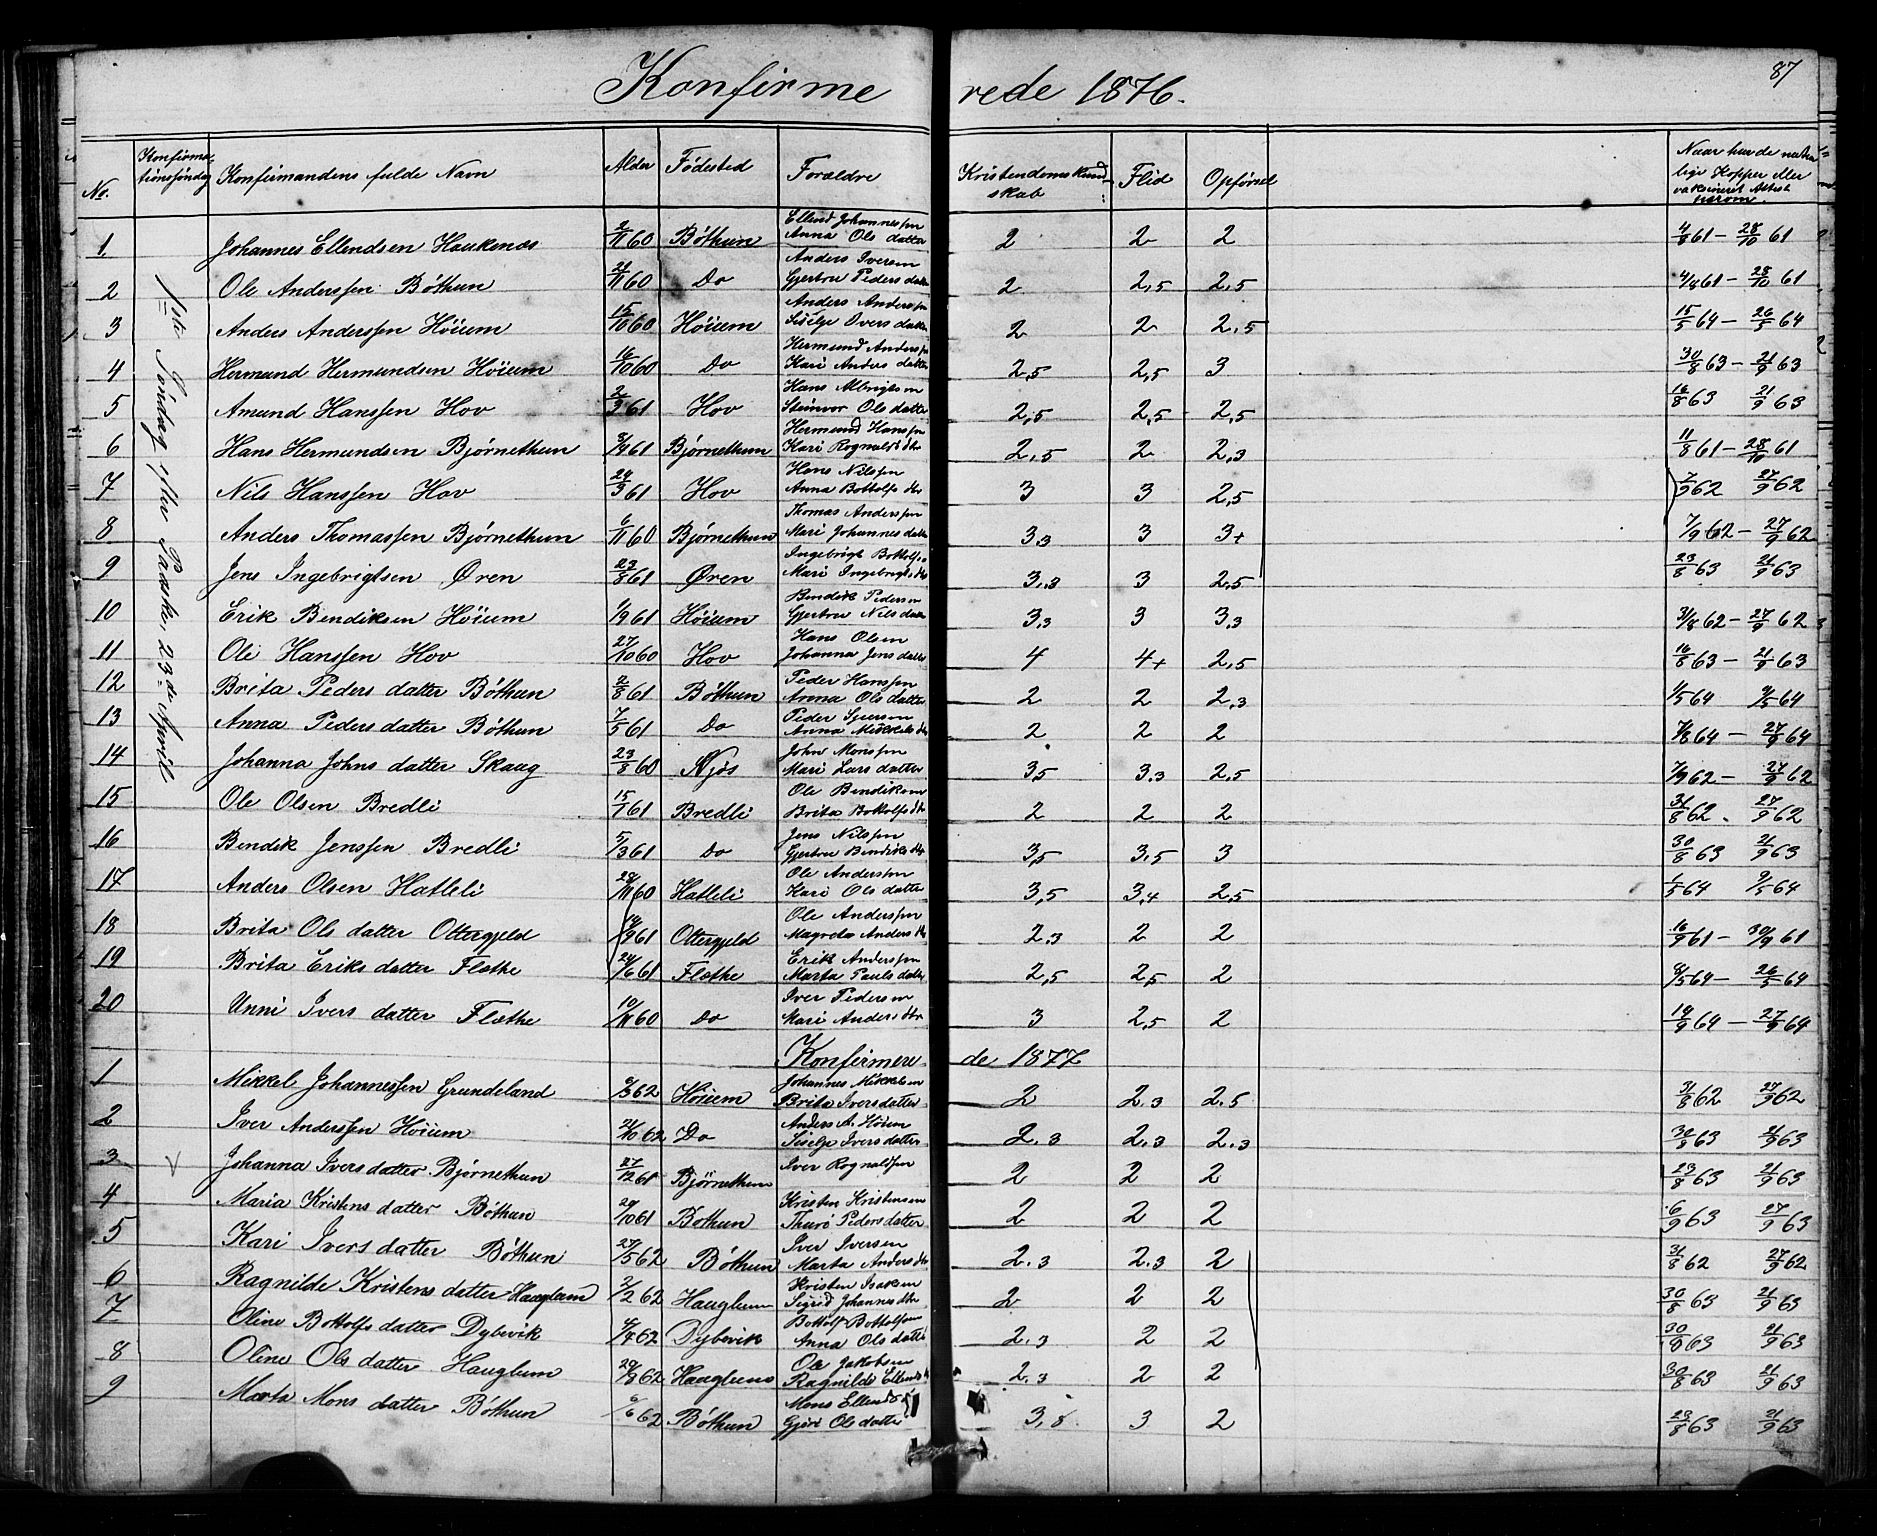 Konfirmerede 1876.
87
No. Konfirmationsøndag Konfirmandens fulde Navn Alder Fødested Forældre Kristendomskundskab Flid Opførsel Naar havde naturlige Kopper eller vaksineret Attest herom.
1ste Søndag efter Paaske, 23de April
1. Johannes Ellendsen Haukenæs 2/11 60 Bøthun Ellend Johannessen Anna Ols datter 2 2 2 4/8 61 – 28/10 61
2 Ole Anderssen Bøthun 21/11 60 Do Anders Iversen Gjertru Peders datter 2 2,5 2,5 4/8 61 – 28/10 61
3 Anders Anderssen Høium 15/10 60 Høium Anders Anderssen Siselje Ivers datter 2 2 2,5 15/5 64 – 26/5 64
4 Hermund Hermundsen Høium 16/10 60 Do Hermund Anderssen Kari Anders datter 2,5 2,5 3 30/8 63 – 21/9 63
5 Amund Hanssen Hov 2/3 61 Hov Hans Albrigtsen Steinvor Ols datter 2,5 2,5 2,5 16/8 63 21/9 63
6 Hans Hermundsen Bjørnethun 3/4 61 Bjørnethun Hermund Hanssen Kari Rognalds dtr 2,5 2 2,3 11/8 61 – 28/10 61
7 Nils Hanssen Hov 24/3 61 Hov Hans Nilssen Anna Bottolfs dtr 3 3 2,5 7/9 62 27/9 62
8 Anders Thomassen Bjørnethun 6/11 60 Bjørnethun Thomas Anderssen Mari Johannes datter 3,3 3 3+ 7/9 62 – 27/9 62
9 Jens Ingebrigtsen Øren 23/8 61 Øren Ingebrigt Bottolfs. Mari Ingebrigts dtr 3,3 3 2,5 23/8 63 21/9 63
10 Erik Bendiksen Høium 1/9 61 Høium Bendik Pedersen Gjertru Nils datter 3,3 3 3,3 31/8 62 – 27/9 62
11 Ole Hanssen Hov 27/10 60 Hov Hans Olsen Johanna Jens datter 4 4+ 2,5 16/8 63 – 21/9 63
12 Brita Peders datter Bøthun 2/8 61 Bøthun Peder Hanssen Anna Ols datter 2 2 2,3 1/5 64 9/5 64
13 Anna Peders datter Bøthun 7/5 61 Do Peder Sjursen Anna Mikkels dtr 2 2 2 7/8 64 – 27/9 64
14 Johanna Johns datter Skaug 23/8 60 Njøs John Monssen Mari Lars datter 3,5 3.3 2,5 7/9 62 – 27/9 62
15 Ole Olsen Bredli 15/1 61 Bredli Ole Bendiksen Brita Bottolfs dtr 2 2 2 31/8 62. 27/9 62
16 Bendik Jenssen Bredli 5/3 61 Do Jens Nilssen Gjertru Bendiks dtr 3,5 3,5 3 30/8 63 21/9 63
17 Anders Olsen Hatleli 28/11 60 Hatleli Ole Anderssen Kari Ols datter 3,5 3,4 2,5 1/5 64 9/5 64
18 Brita Ols datter Ottergjeld 14/9 61 Ottergjeld Ole Anderssen Magreta Anders dtr 2.3 2 2 16/9 61 – 30/9 61
19 Brita Eriks datter Flothe 24/6 61 Flothe Erik Anderssen Marta Pauls datter 2,5 2,5 2 8/5 64 – 26/5 64
20 Unni Ivers datter Flothe 10/11 60 Do Iver Pedersen Mari Anders dtr 3 2,5 2 14/9 64 – 27/9 64
Konfirmerede 1877
1 Mikkel Johannessen Grundeland 9/3 62 Høium Johannes Mikkelsen Brita Iversdatter 2 2.3 2.5 31/8 62 27/9 62
2 Iver Anderssen Høium 21/10 62 Do Anders A. Høium Siselje Ivers datter 2.3 2.3 2.3 30/8 63 21/9 63
3 Johanna Ivers datter Bjørnethun 27/12 61 Bjørnethun Iver Rognaldsen 2 2 2 23/8 63 21/9 63
4 Maria Kristens datter Bøthun 29/10 61 Bøthun Kristen Kristensen Thuri Peders datter 2 2 2 6/9 63 27/9 63
5 Kari Ivers datter Bøthun 27/5 62 Bøthun Iver Iversen Marta Anders dtr 2.3 2.3 2 31/8 62 27/9 62
6 Ragnilde Kristens datter Hauglum 2/2 62 Hauglum Kristen Isaksen Sigrid Johannes dtr 2 2 2 30/8 63 21/9 63
7 Oline Bottolfs datter Dybevik 4/4 62 Dybevik Bottolf Bottolfsen Anna Ols datter 2.3 2 2 30/8 63 21/9 63
8 Oline Ols datter Hauglum 29/8 62 Hauglum Ole Jakobsen Ragnilde Ellends dtr 2,3 2 2 30/8 63 21/9 63
9 Marta Mons datter Bøthun 6/6 62 Bøthun Mons Ellends Gjøri Ols datter 3,8 3 2 23/8 63 21/9 63